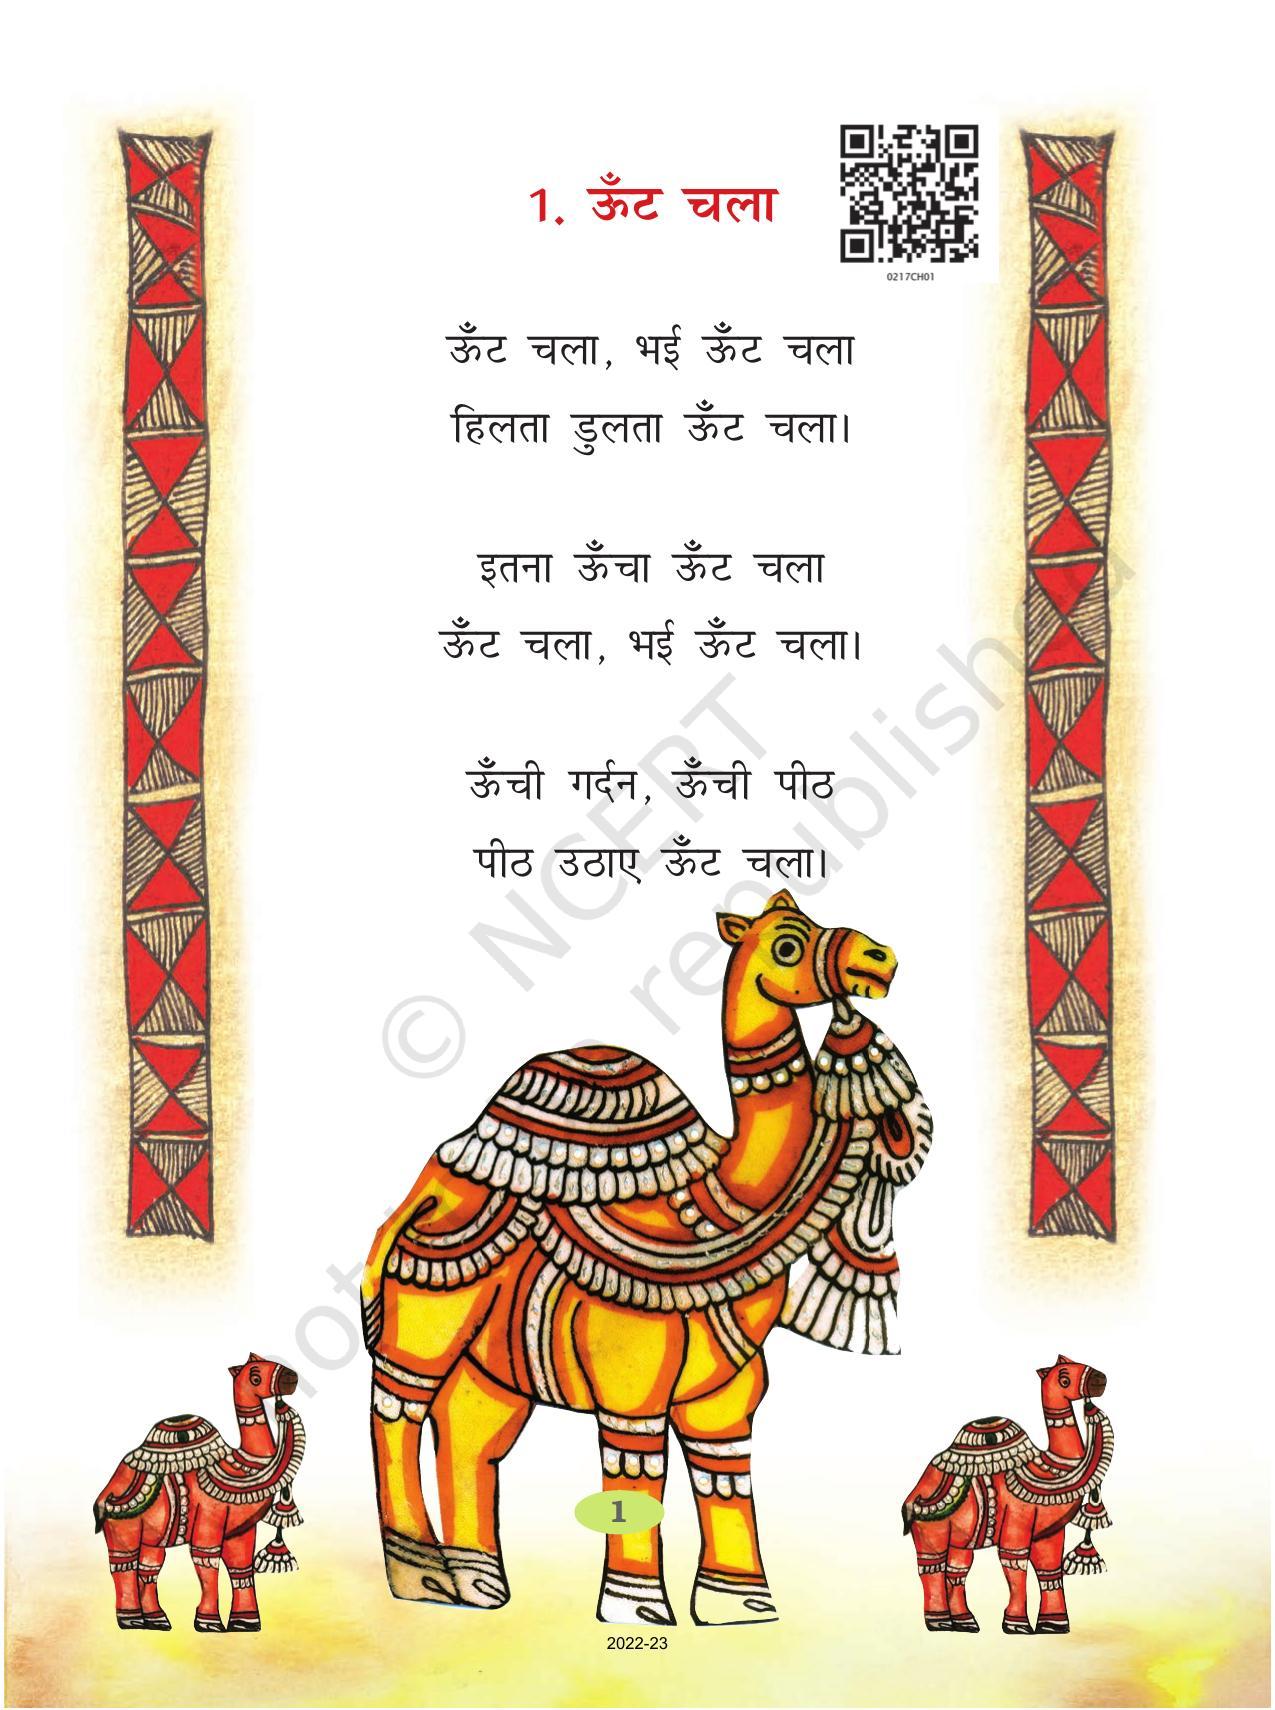 1. ऊँट चला
0217CH01
ऊँट चला, भई ऊँट चला
हिलता डुलता ऊँट चला।
इतना ऊँचा ऊँट चला
ऊँट चला, भई ऊँट चला।
ऊँची गर्दन, ऊँची पीठ
पीठ उठाए ऊँट चला।
© NCERT
not republished
1
2022-23